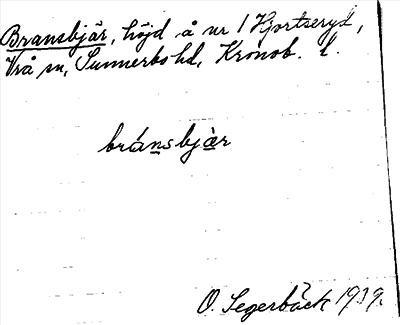 Bransbjär, höjd å nr 1 Hjortseryd,
Vrå sn, Sunnerbo hd, Kronob. l.
bránsbjàr
O. Segerbäck 1939.